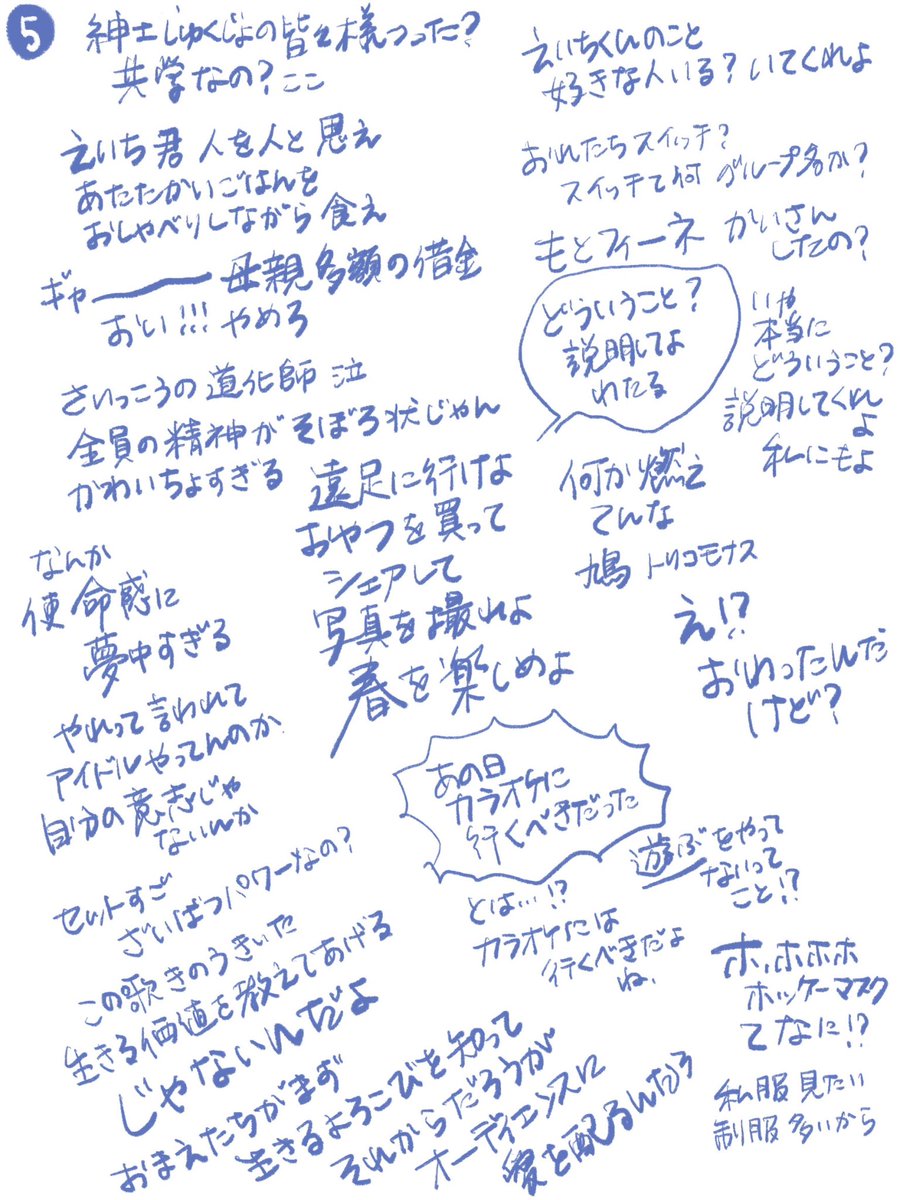 5
紳士じゅくじょの皆々様つった?
共学なの?ここ
えいち君 人を人と思え
あたたかいごはんを
おしゃべりしながら食え
ギャー 母親多額の借金
おい!!!やめろ
さいっこうの道化師 泣
全員の精神がそぼろ状じゃん
かわいちょすぎる
なんか
使命感に
夢中すぎる
やれって言われて
アイドルやってんのか
自分の意志じゃ
ないんか
セットすご
ざいばつパワーなの?
この歌きのうきいた
生きる価値を教えてあげる
じゃないんだよ
おまえたちがまず
生きるよろこびを知って
それからだろうが
オーディエンスに
愛を配るんだろ
遠足に行けよ
おやつを買って
シェアして
写真を撮れよ
春を楽しめよ
えいちくんのこと
好きな人いる?いてくれよ
おれたちスイッチ?
スイッチて何 グループ名か?
もとフィーネ かいさん
したの?
どういうこと?
説明してよ
わたる
いや
本当に
どういうこと?
説明してくれ
よ
私にもよ
何か燃え
てんな
鳩 トリコモナス
え!?
おわったんだ
けど?
あの日
カラオケに
行くべきだった
とは…!?
カラオケには
行くべきだよ
ね、
遊ぶをやって
ないって
こと!?
ホ、ホホホ
ホッケーマスク
てなに!?
私服見たい
制服多いから